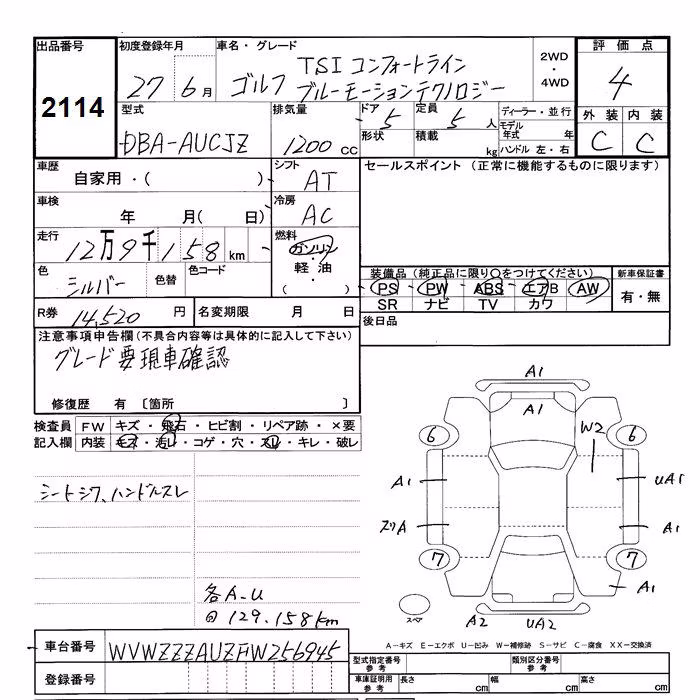 出品番号 初度登録年月 車名・グレード 2WD・4WD 評価点
2114 27 6月 ゴルフ TSI コンフォートライン 4
ブルーモーションテクノロジー
型式 排気量 ドア 5 定員 5人 ディーラー・並行 外装 内装
DBA-AUCJZ 1200 cc 形状 積載 kg モデル年式 年 C C
ハンドル 左・右
車歴 シフト セールスポイント (正常に機能するものに限ります)
自家用・( ) AT
車検 冷房
年 月( 日) AC
走行 燃料
12万9千158km ガソリン・軽油
( )
色 色替 色コード 装備品(純正品に限り○をつけてください) 新車保証書
シルバー PS PW ABS エアB AW 有・無
SR ナビ TV カワ
R券 14,520円 名変期限 月 日 後日品
注意事項申告欄(不具合内容等は具体的に記入して下さい)
グレード要現車確認
修復歴 有 〔箇所 〕
検査員 FW キズ・飛石・ヒビ割・リペア跡・×要
記入欄 内装 キズ・汚レ・コゲ・穴・スレ・キレ・破レ
シートシワ、ハンドルスレ
各A-U
@ 129.158km
A1
A1
W2
6 6
A1 UA1
A1
7 7
A1
スペア A2 UA2
A-キズ E-エクボ U-凹み W-補修跡 S-サビ C-腐食 XX-交換済
車台番号 WVWZZZAUZFW256945
登録番号
型式指定番号 参考 類別区分番号 参考
車庫証明用 参考 長さ cm 幅 cm 高さ cm